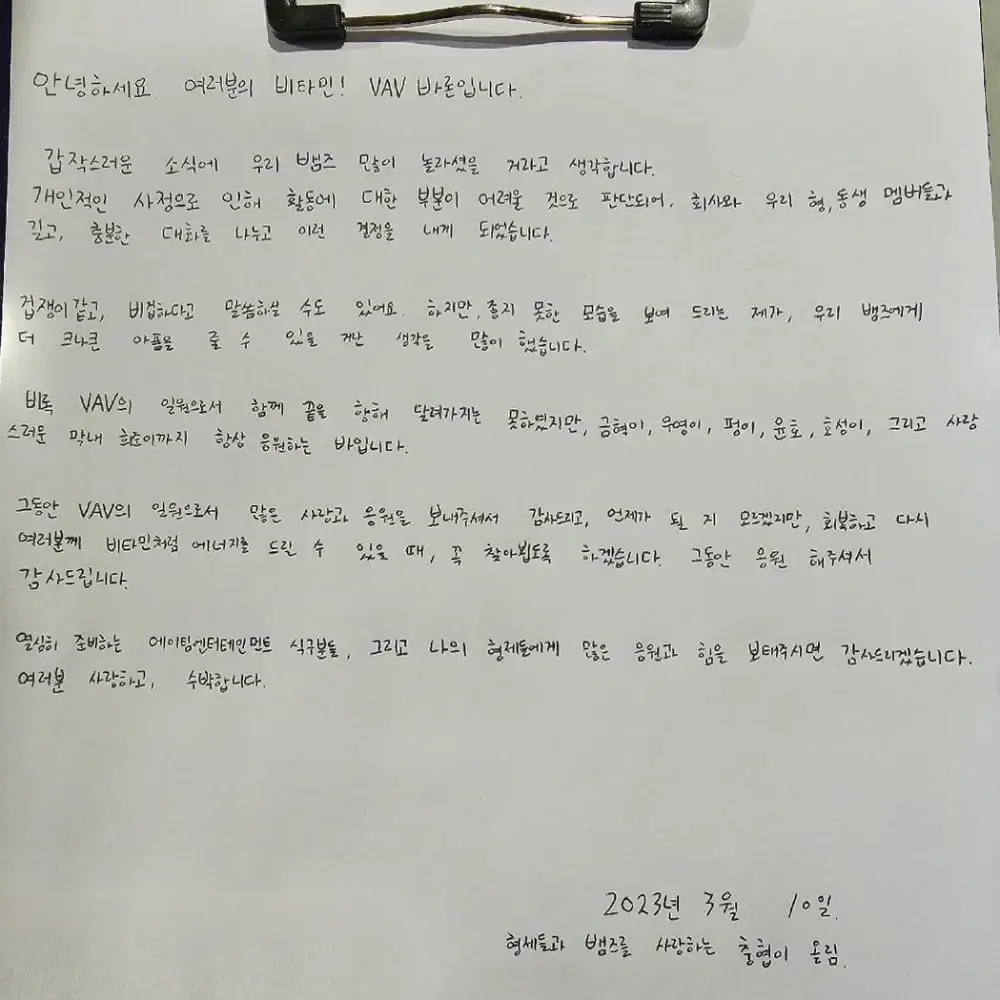 안녕하세요. 여러분의 비타민! VAV 바론입니다.
갑작스러운 소식에 우리 뱀즈 많이 놀라셨을 거라고 생각합니다.
개인적인 사정으로 인해 활동에 대한 부분이 어려울 것으로 판단되어, 회사와 우리 형,동생 멤버들과
깊고, 충분한 대화를 나누고 이런 결정을 내게 되었습니다.
겁쟁이같고, 비겁하다고 말씀하실 수도 있어요. 하지만, 좋지 못한 모습을 보여 드리는 제가, 우리 뱀즈에게
더 크나큰 아픔을 줄 수 있을 거란 생각을 많이 했습니다.
비록 VAV의 일원으로서 함께 끝을 향해 달려가지는 못하였지만, 금혁이, 우영이, 펑이, 윤호, 호성이, 그리고 사랑
스러운 막내 희준이까지 항상 응원하는 바입니다.
그동안 VAV의 일원으로서 많은 사랑과 응원을 보내주셔서 감사드리고, 언제가 될 지 모르겠지만, 회복하고 다시
여러분께 비타민처럼 에너지를 드린 수 있을 때, 꼭 찾아뵙도록 하겠습니다. 그동안 응원 해주셔서
감사드립니다.
열심히 준비하는 에이팀엔터테인먼트 식구분들, 그리고 나의 형제들에게 많은 응원과 힘을 보태주시면 감사드리겠습니다.
여러분 사랑하고, 수박합니다.
2023년 3월 10일.
형제들과 뱀즈를 사랑하는 충협이 올림.